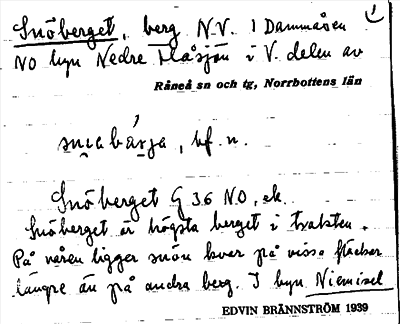 Snöberget, berg N.V. I Dammåsen
NO byn Nedre Flåsjön i V. delen av
Råneå sn och tg, Norrbottens län
bf. n.
Snöberget G 36 NO, ek.
Snöberget är högsta berget i trakten.
På våren ligger snön kvar på vissa fläckar
längre än på andra berg. I byn Niemisel
EDVIN BRÄNNSTRÖM 1939